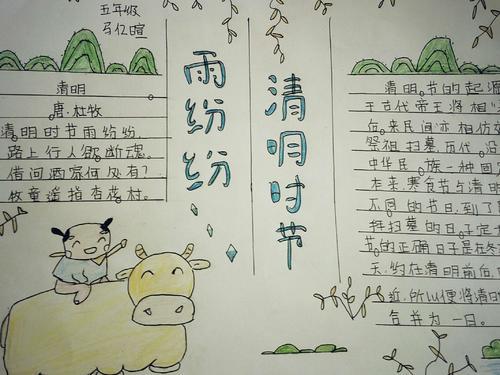 五年级
马亿暄
清明
唐.杜牧
清明时节雨纷纷,
路上行人欲断魂。
借问酒家何处有?
牧童遥指杏花村。
清明时节
雨纷纷
清明。节的起源
于古代帝王将相
后来民间亦相仿
祭祖扫墓.历代。沿
中华民。族一种回
本来,寒食节与清明
不同的节日,到了
拜扫墓的日。子定
节。的正确日子是在冬
天,约在清明前后,
近,所以便将清明
合并为一日。